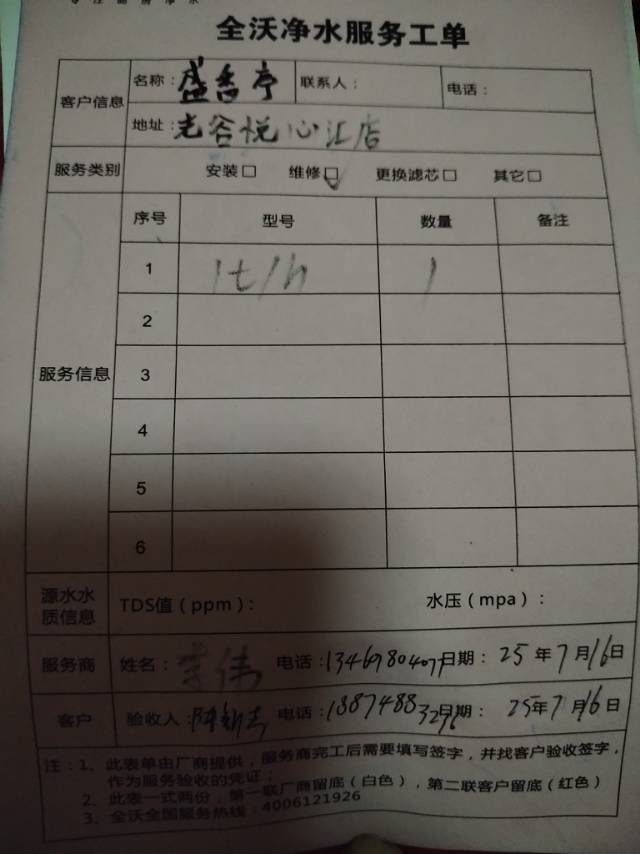 专注商房净水
全沃净水服务工单
客户信息 名称：盛香亭 联系人： 电话：
地址：光谷悦心汇店
服务类别 安装□ 维修□✓ 更换滤芯□ 其它□
服务信息 序号 型号 数量 备注
1 1t/h 1
2
3
4
5
6
源水水质信息 TDS值（ppm）： 水压（mpa）：
服务商 姓名： 伟 电话： 日期：25年7月16日
客户 验收人：陈 电话： 日期：25年7月16日
注：1、此表单由厂商提供，服务商完工后需要填写签字，并找客户验收签字，
作为服务验收的凭证；
2、此表一式两份，第一联厂商留底（白色），第二联客户留底（红色）
3、全沃全国服务热线：4006121926